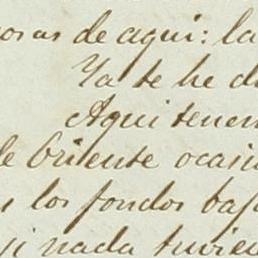 de aqui: la
Ya te he d
Aqui tenem
de Oriente ocasi
los fondos baj
nada tuvie